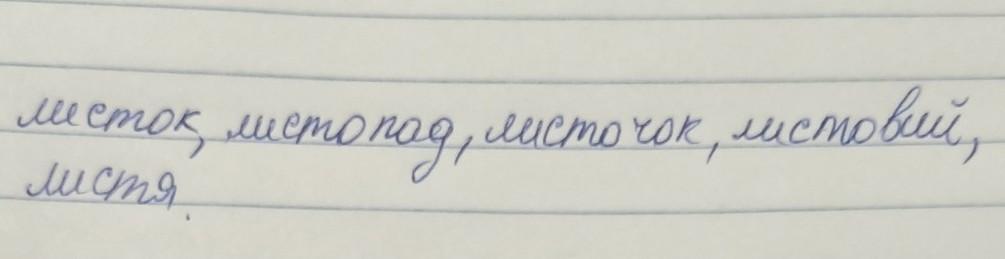 листок, листопад, листочок, листовий,
листя.